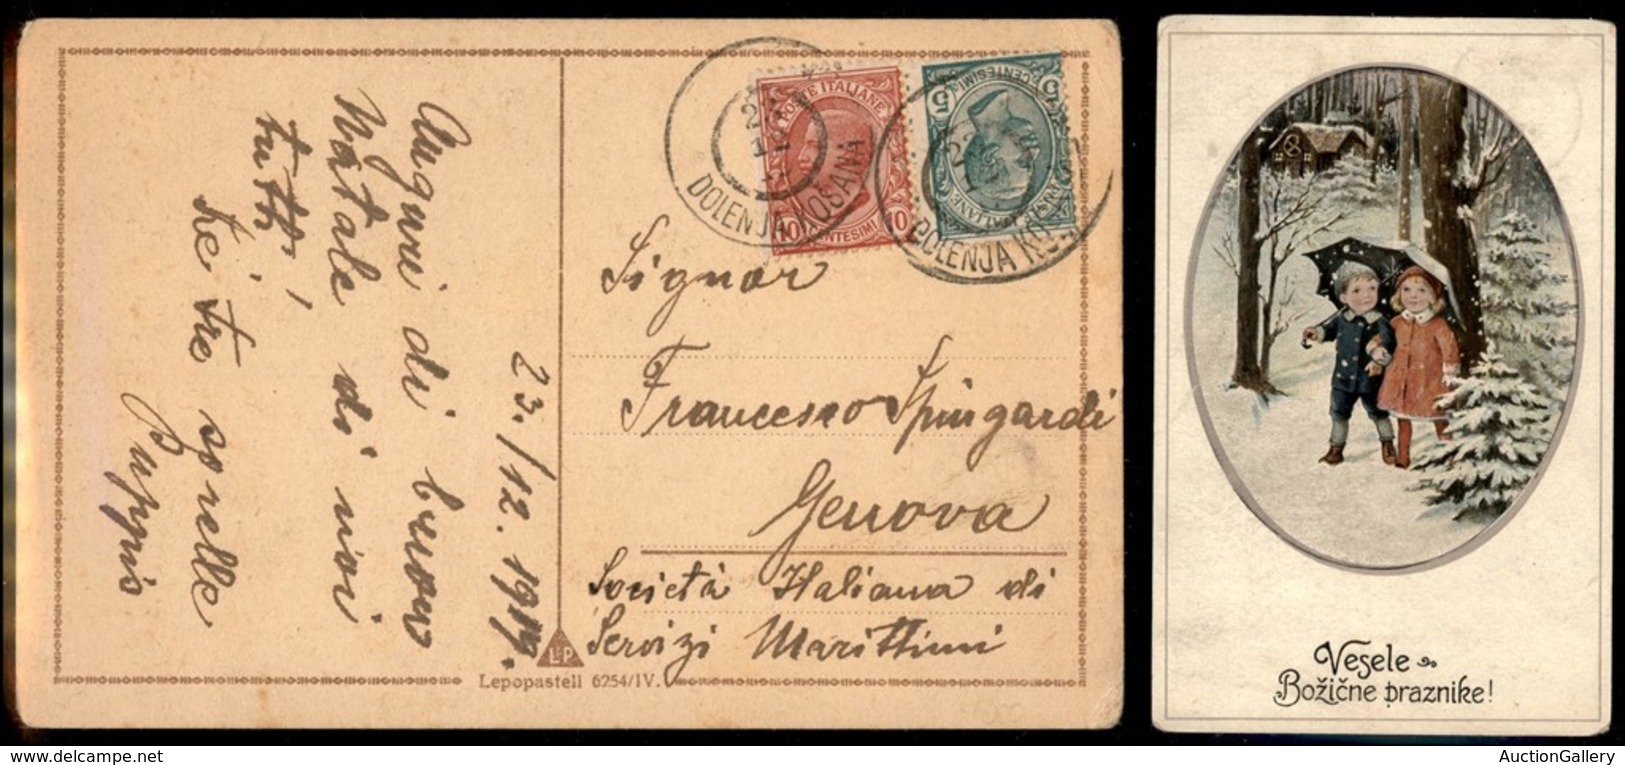 Auguri di buon
Natale di noi
tutti
Le tre sorelle
23./12. 1919.
POSTE ITALIANE
10 10
CENTESIMI
DOLENJA KOŠANA
5 5
CENTESIMI
DOLENJA KO
Signor
Francesco Spingardi
Genova
Società Italiana di
Servizi Marittimi
LP
Lepopastell 6254/IV.
Vesele
Božične praznike!
AuctionGallery